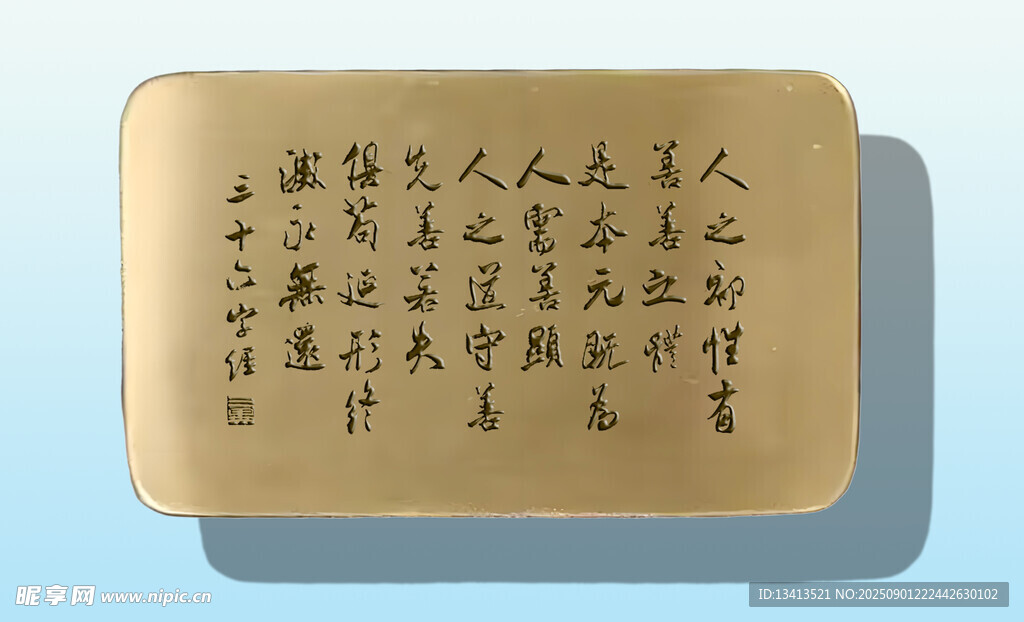 人之初性有
善善立體
是本元既為
人需善顯
人之道守善
先善若失
苟延形終
滅永無還
三十六字經
昵享网 www.nipic.cn
ID:13413521 NO:20250901222442630102